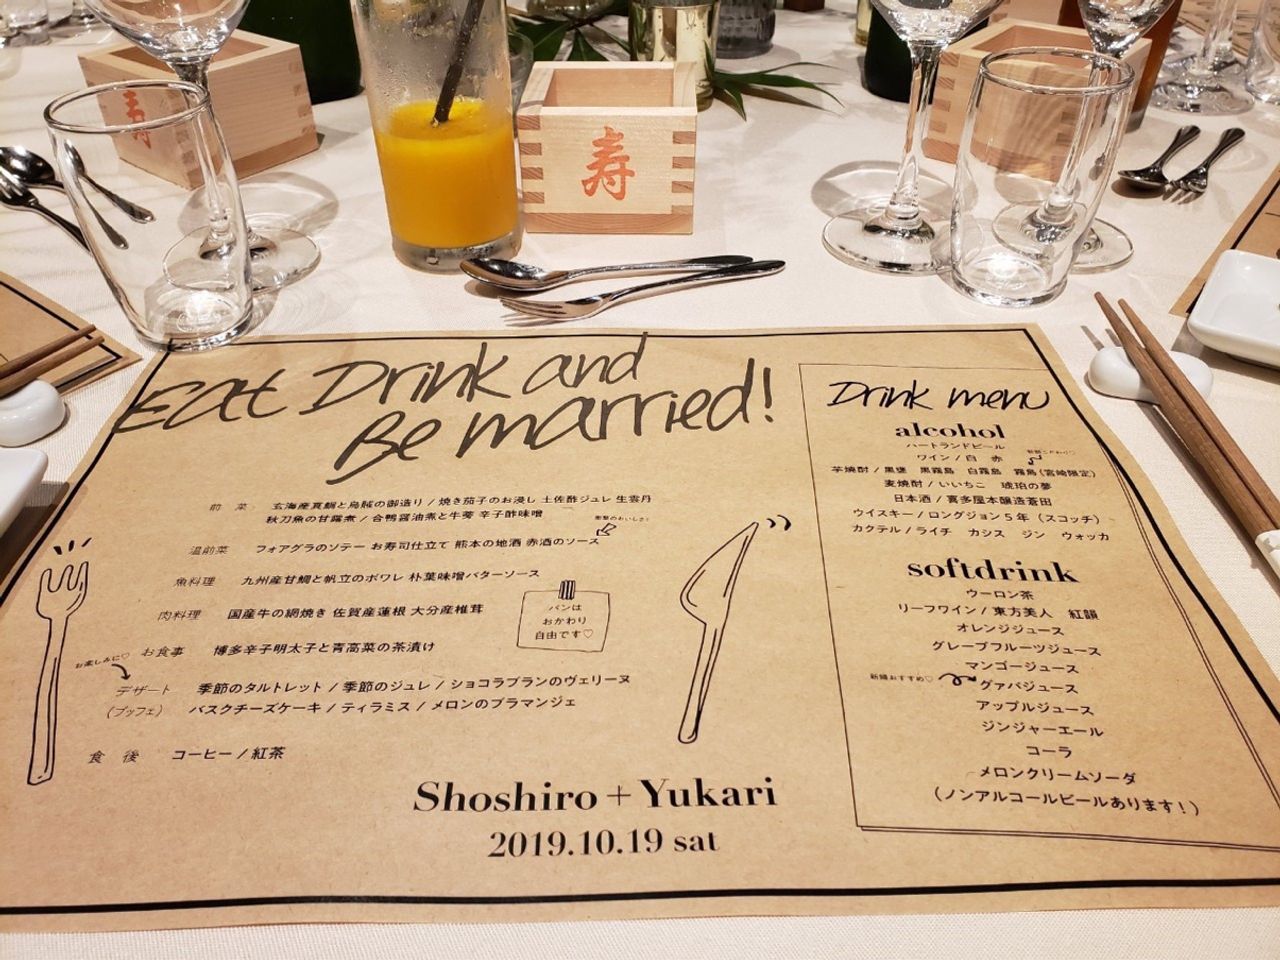 寿
寿
Eat Drink and
Be married!
前菜 玄海産真鯛と烏賊の御造り / 焼き茄子のお浸し 土佐酢ジュレ 生雲丹
秋刀魚の甘露煮 / 合鴨醤油煮と牛蒡 辛子酢味噌
温前菜 フォアグラのソテー お寿司仕立て 熊本の地酒 赤酒のソース
魚料理 九州産甘鯛と帆立のポワレ 朴葉味噌バターソース
肉料理 国産牛の網焼き 佐賀産蓮根 大分産椎茸
パンは
おかわり
自由です♡
お食事 博多辛子明太子と青高菜の茶漬け
お楽しみに♡
デザート 季節のタルトレット / 季節のジュレ / ショコラブランのヴェリーヌ
(ブッフェ) バスクチーズケーキ / ティラミス / メロンのブラマンジェ
食後 コーヒー / 紅茶
Shoshiro + Yukari
2019.10.19 sat
Drink menu
alcohol
ハートランドビール
ワイン / 白 赤
芋焼酎 / 黒霧島 白霧島 霧島(宮崎限定)
麦焼酎 / いいちこ 琥珀の夢
日本酒 / 喜多屋本醸造蒼田
ウイスキー / ロングジョン5年 (スコッチ)
カクテル / ライチ カシス ジン ウォッカ
softdrink
ウーロン茶
リーフワイン / 東方美人 紅韻
オレンジジュース
グレープフルーツジュース
マンゴージュース
新婦おすすめ♡
グァバジュース
アップルジュース
ジンジャーエール
コーラ
メロンクリームソーダ
(ノンアルコールビールあります!)